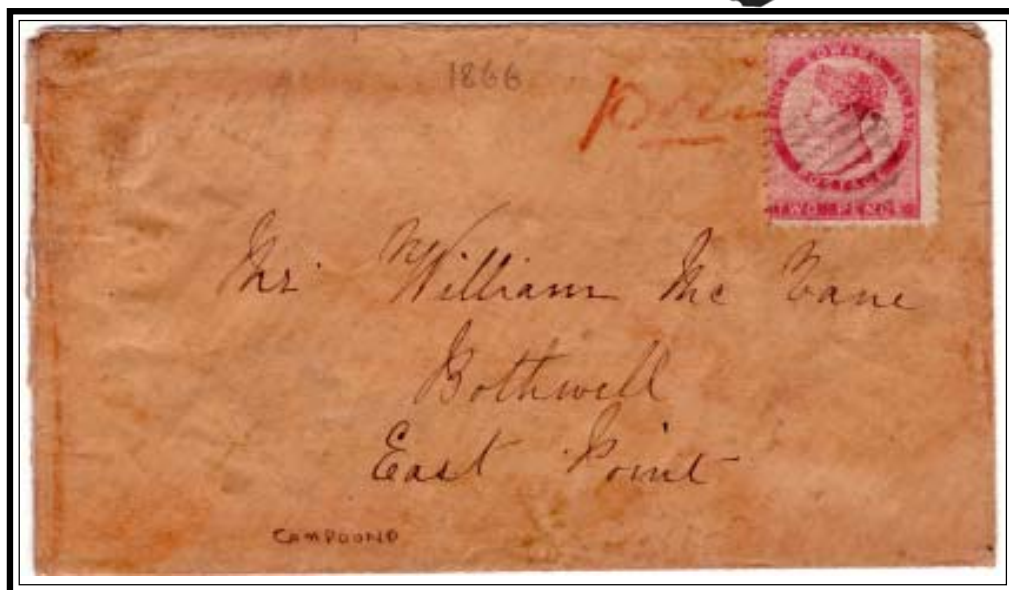 1866
PRINCE EDWARD ISLAND
POSTAGE
TWO PENCE
Mr. William Mc Vane
Bothwell
East Point
COMPOUND